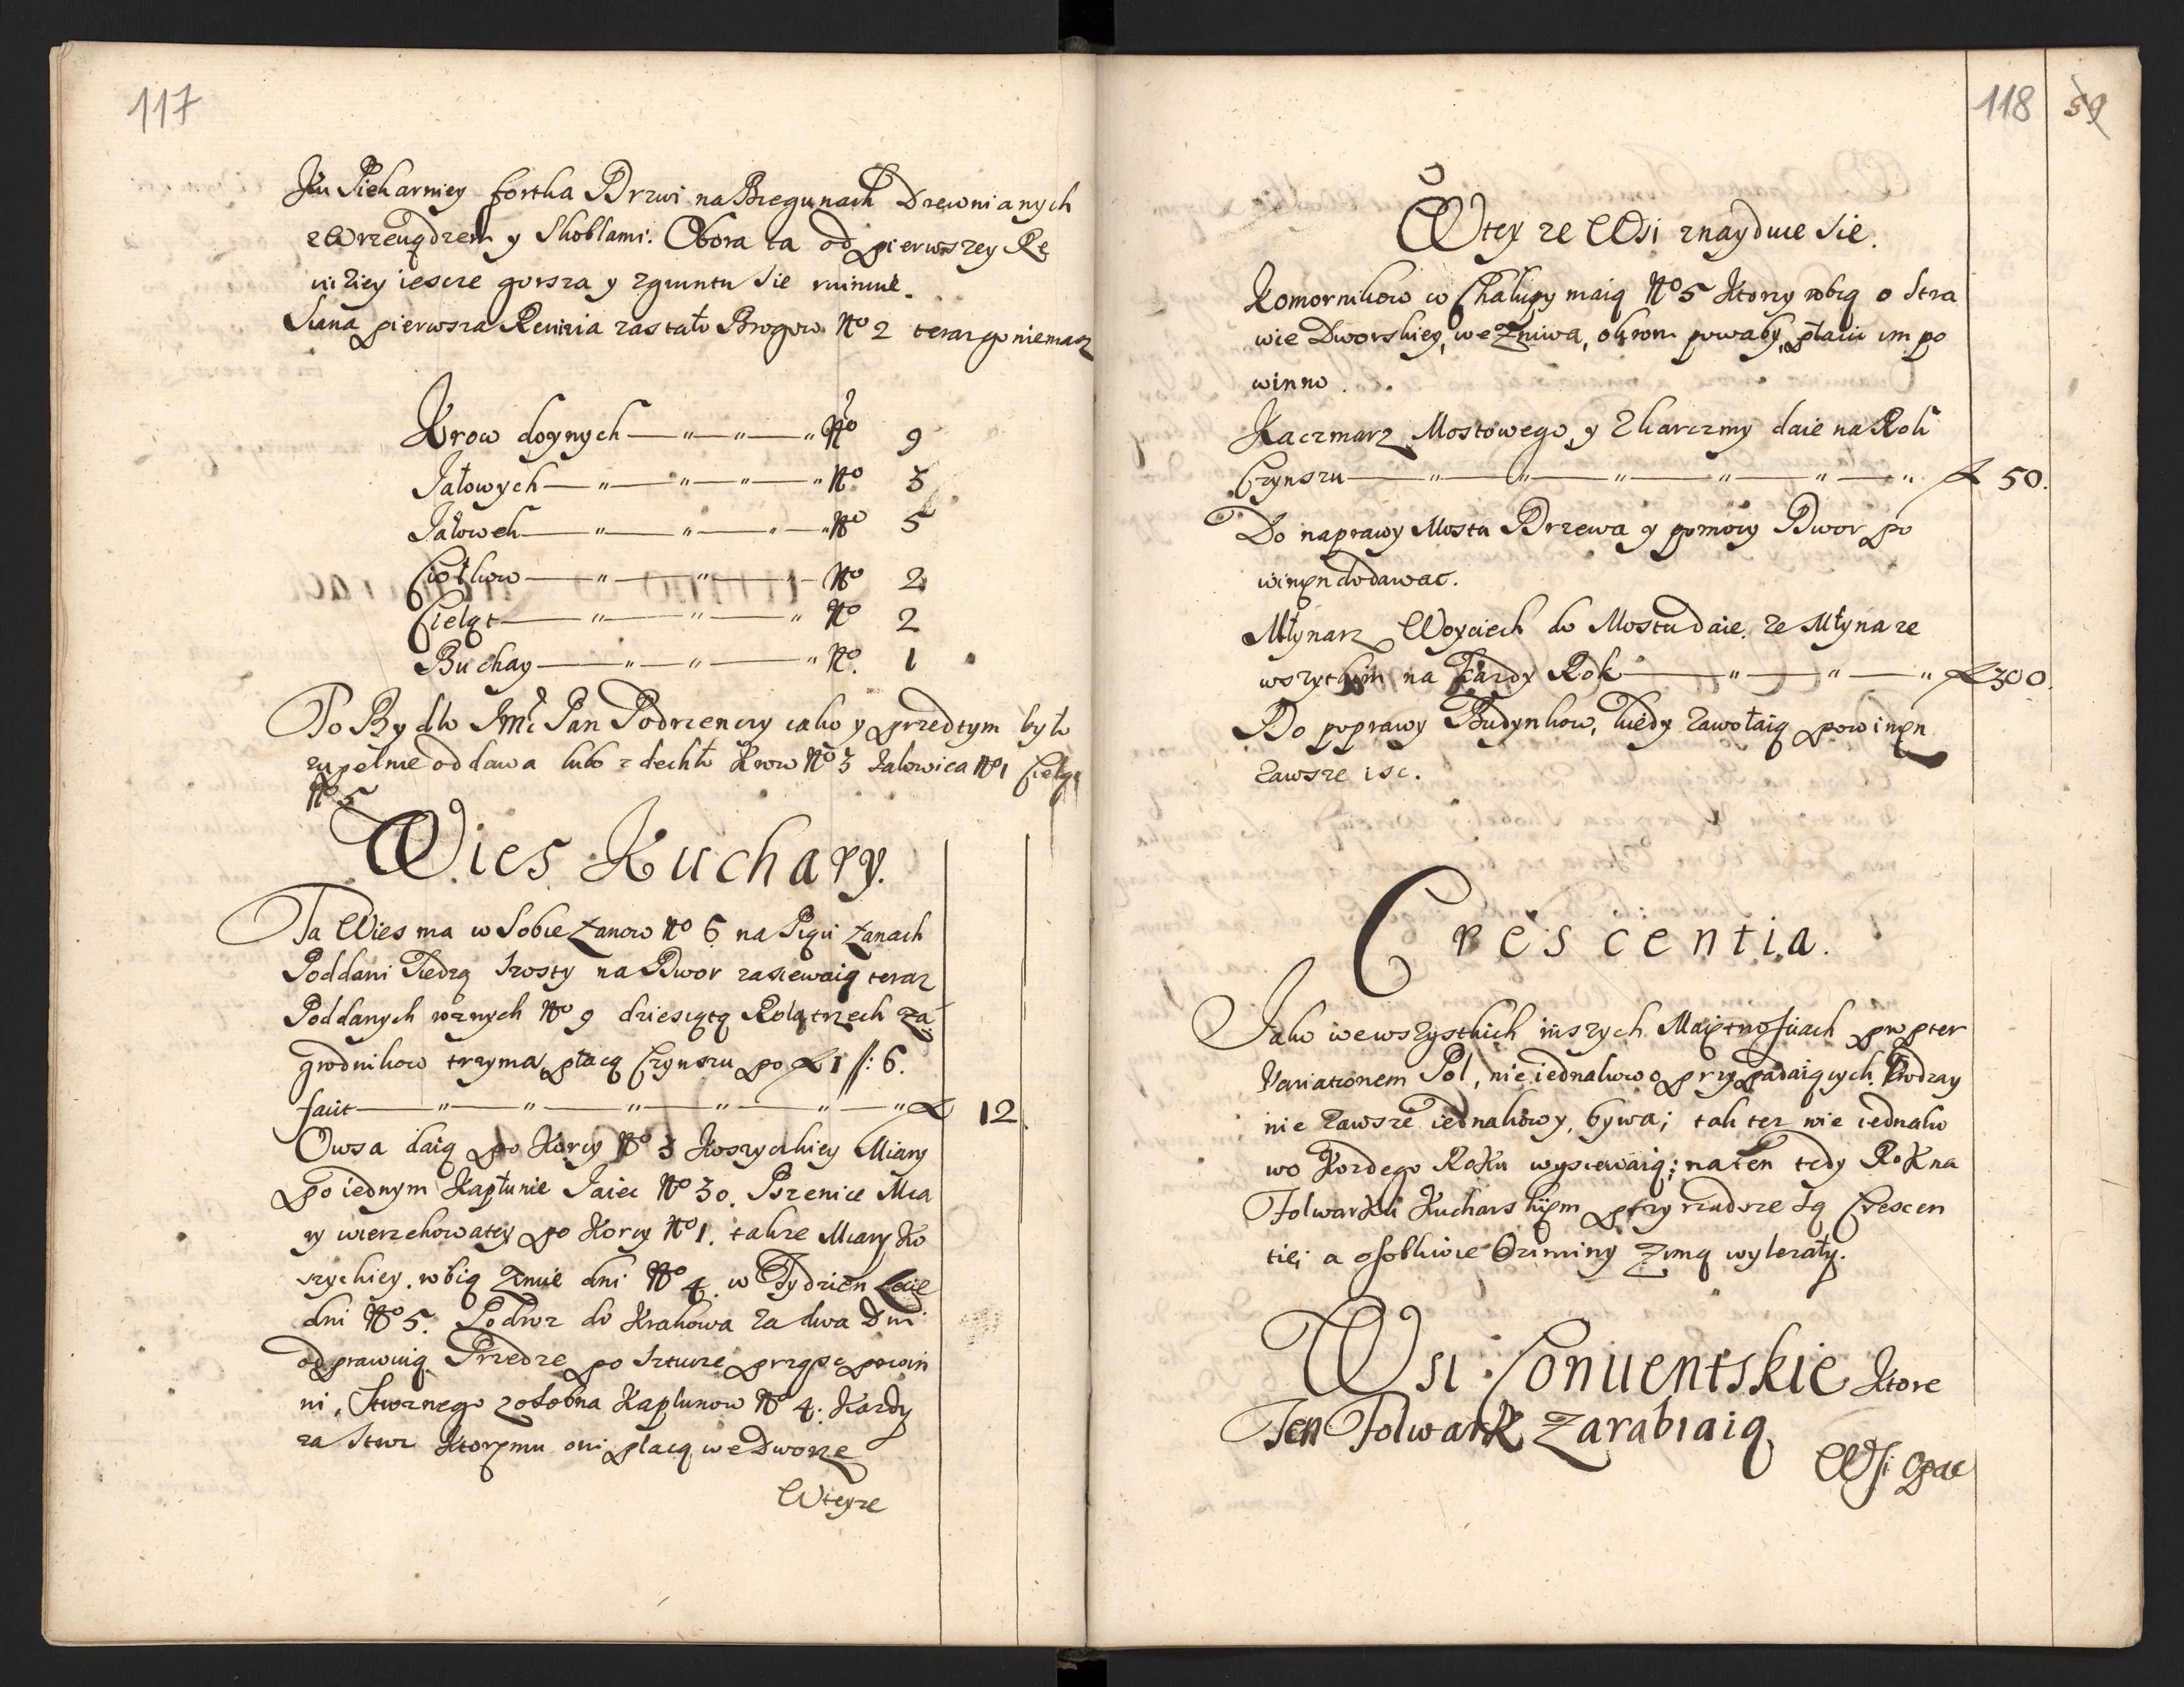 117
Ku Piekarniey fortka Drzwi na Biegunach Drzewnianych
z Wrzeuądzem y Skoblami. Obora ta od pierwszey Re
wiziey iescze gorsza y zgruntu Sie ruinuie.
Siana pierwsza Rewizia zastała Brogow No 2 teraz go niemasz
Krow doynych — " — " — " No 9
Jałowych — " — " — " — " No 3
Jałowek — " — " — " — " No 5
Ciołkow — " — " — No 2
Cieląt — " — " — " No 2
Buchay — " — " — " No. 1
To Bydło JMć Pan Podrzenczy iako y przedtym było
zupełnie oddawa lubo zdechło Krow No 3 Jałowica No 1 Cieląt
No 5
Wies Kuchary.
Ta Wies ma w Sobie Łanow No 6 na Piąci Łanach
Poddani Siedzą Szosty na Dwor zasiewaią teraz
Poddanych roznych No 9 dziesiątą Rolą trzech Za
grodnikow trzyma, płacą Czynszu po f 1 /: 6.
facit — " — " — " — " — " — " f 12.
Owsa daią po Korcy No 3 Koszyckiey Miary
po iednym Kapłunie Jaiec No 30. Pszenice Mia
ry wierzchowatey po Korcy No 1. takze Miary Ko
szyckiey. robią Zimie dni No 4. w Tydzien Lecie
dni No 5. Podroz do Krakowa za dwa Dni
odprawuią Przedze po Sztuce prząsc powin
ni, Stroznego zosobna Kapłunow No 4. Kazdy
za Stroz Ktorymu oni płacą we Dworze
Wteyze
118 59
Wtey ze Wsi znayduie Sie.
Komornikow co Chałupy maią No 5 Ktorzy robią o Stra
wie Dworskiey, we Zniwa, okrom powaby, płacić im po
winno.
Kaczmarz Mostowego y Zkarczmy daie na Rok
Czynszu — " — " — " — " — " — " f 50.
Do naprawy Mostu Drzewa y pomocy Dwor po
winyn dodawac.
Młynarz Woyciech do Mostu daie ze Młyna ze
wszytkim na Kazdy Rok — " — " — " f 300.
Do poprawy Budynkow, kiedy zawołaią powinyn
zawsze isc.
Crescentia.
Jako we wszystkich inszych Maiętnosciach propter
Variationem Pol, nieiednakowo przypadaiących Urodzay
nie zawsze iednakowy, bywa; tak tez nie iednako
wo Kozdego Roku wysiewaią; na ten tedy Rok na
Folwarku Kucharskiym przyrzudsze Są Crescen
tie; a osobliwie Oziminy Zimą wylezały.
Wsi Conuentskie Ktore
Ten Folwark Zarabiaią
Wsi Opac